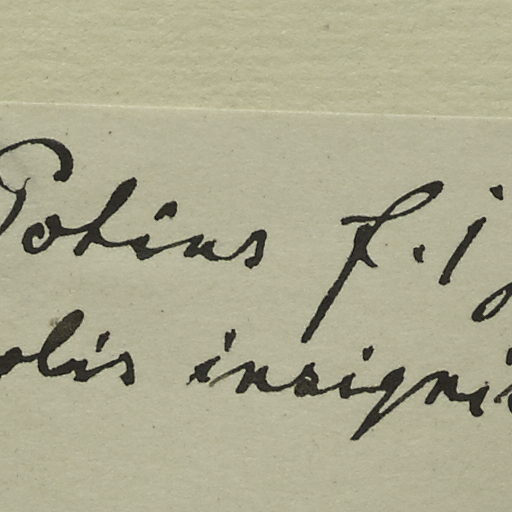 Potius f. j
olis insignis